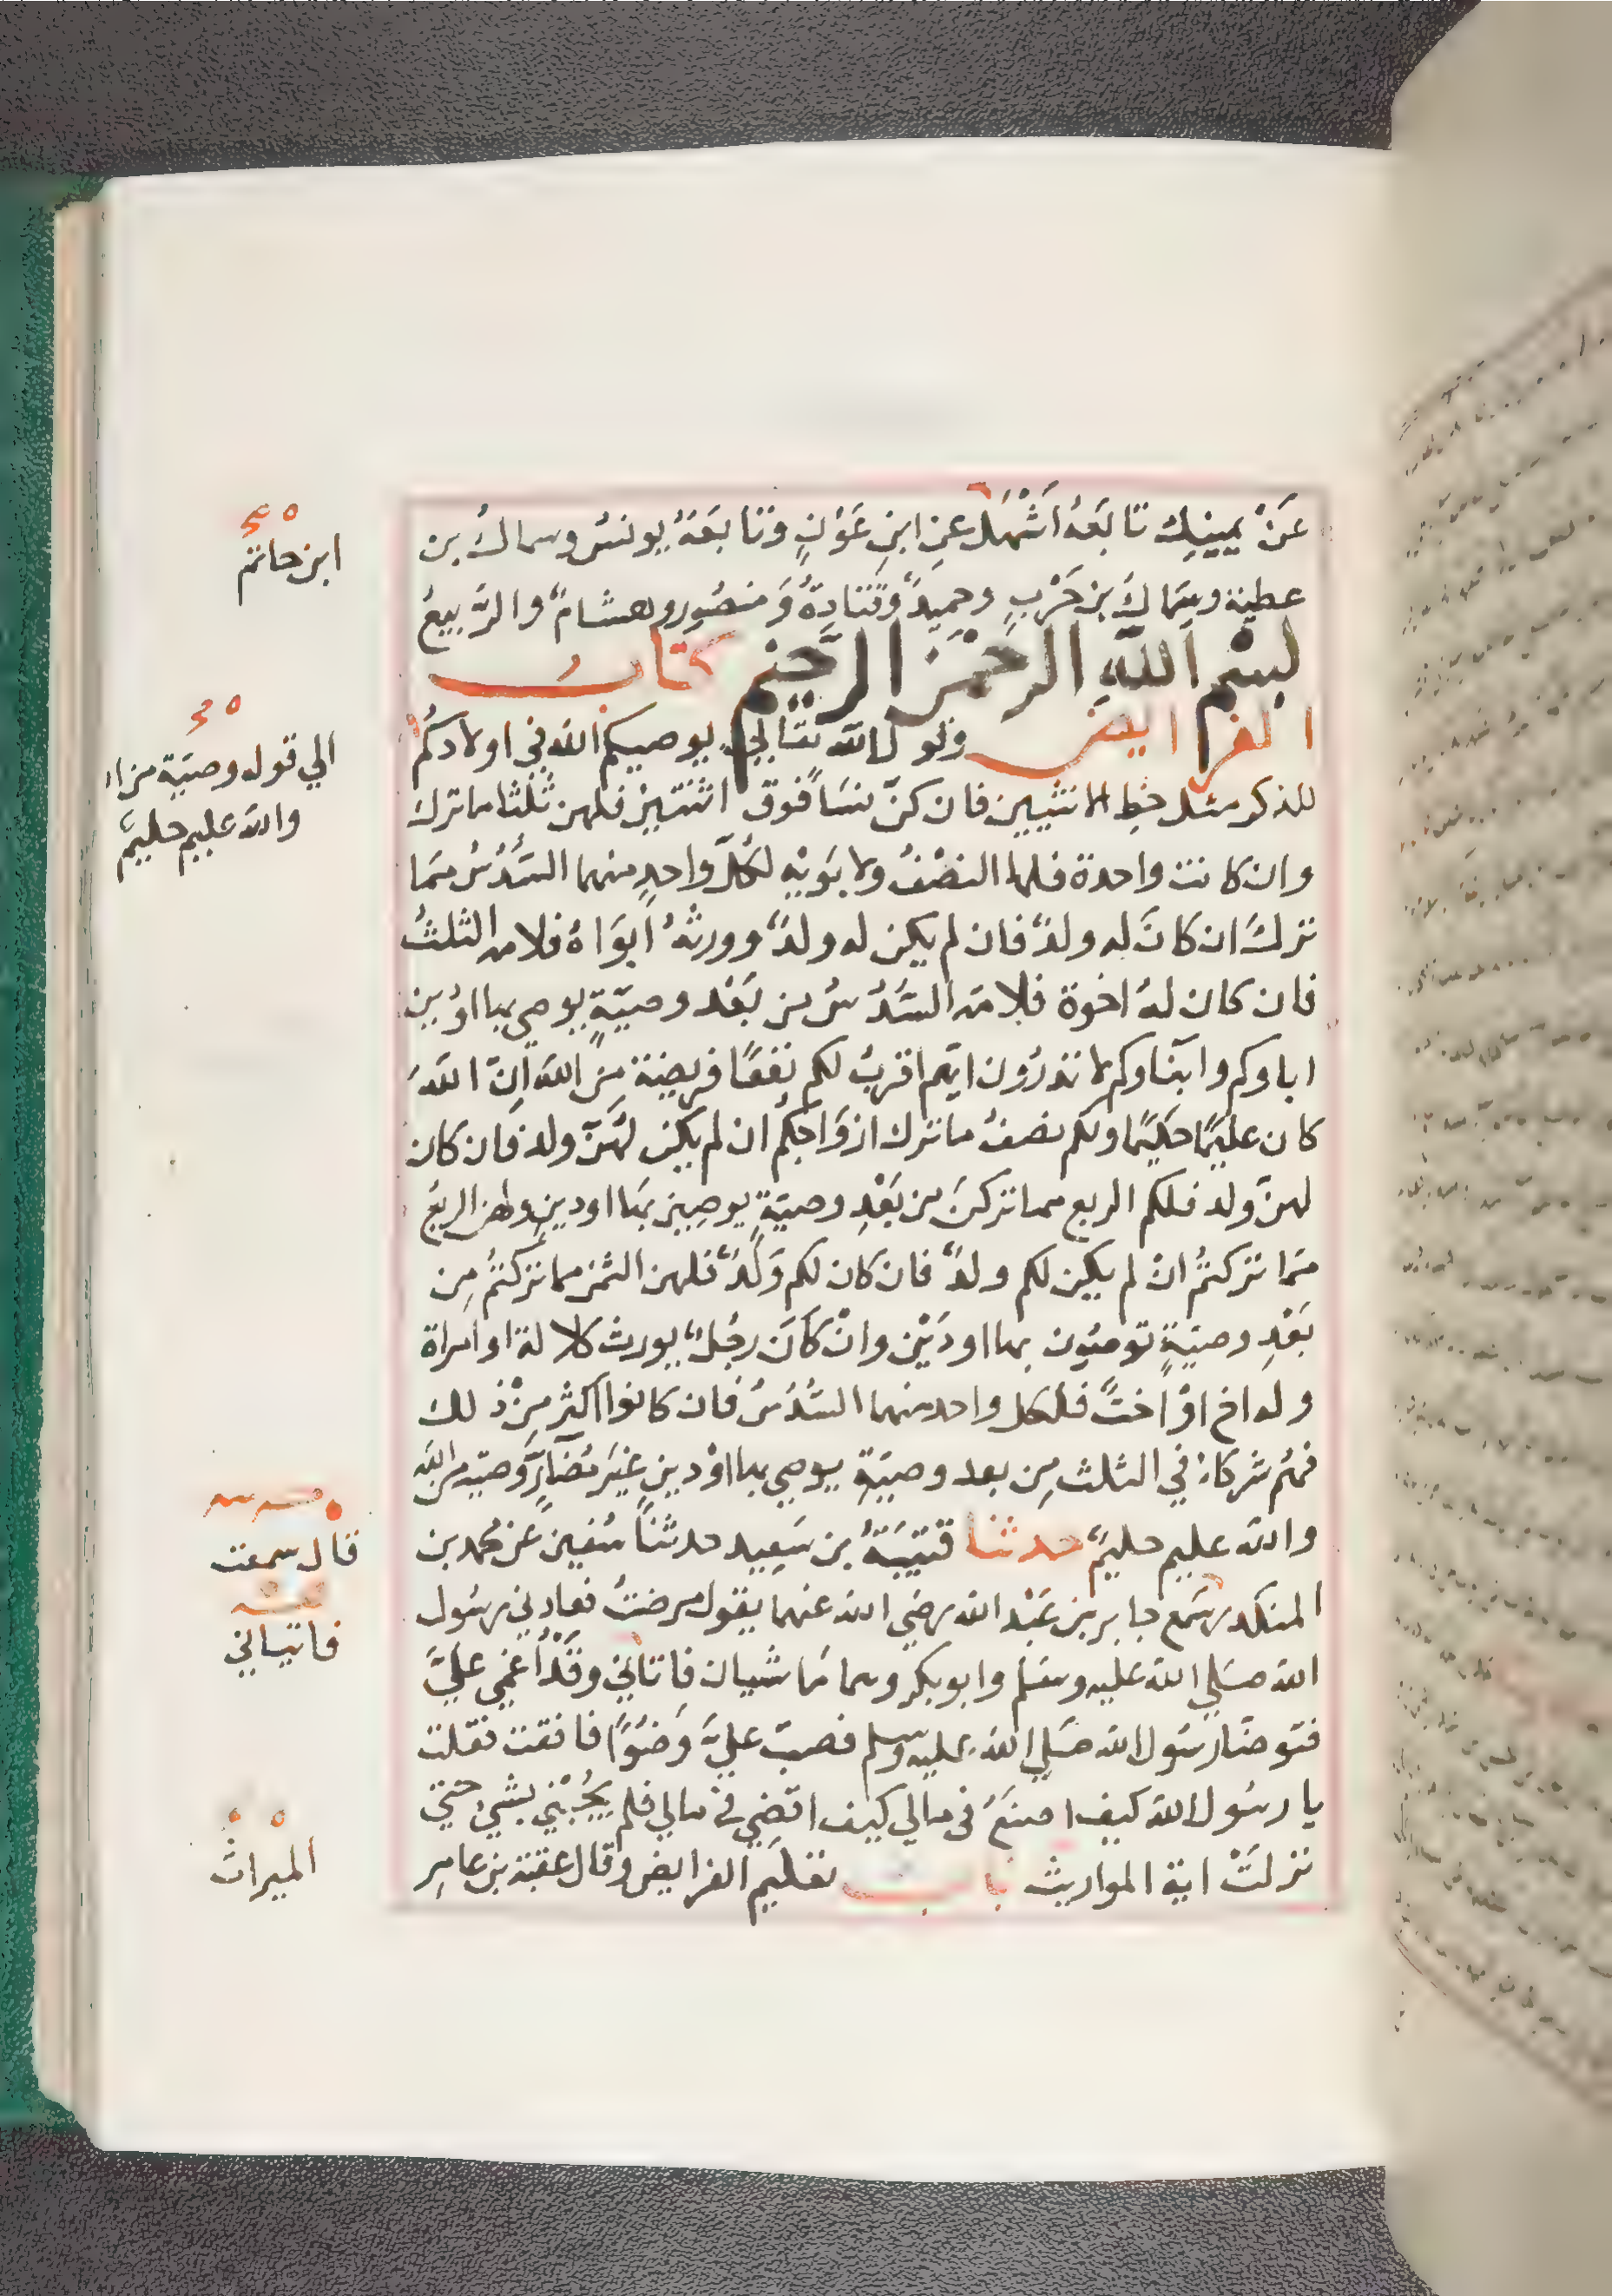 عَنْ يمينِك تابَعَهُ اَشْهَل عنِ ابنِ عَوْنٍ وتابَعَهُ يونسُ وسماكُ بن
عطية وسِمَاكَ بن حَرْبٍ وحميدٌ وقتادةُ وَمنصُور وهشامٌ والرَّبيعُ
بسْمِ اللّهِ الرحْمٰنِ الرحِيْمِ كتابُ
الفرايض وقول الله تعَالي يوصيكم الله في اولادكُم
للذكر مثل حظِ الانثيين فان كنّ نسَاً فوق اثنتين فلهن ثلثا ما ترك
وان كانت واحدة فلها النصْفُ ولابَوَيْهِ لكُلِّ واحِدٍ منهما السَّدُسُ مَّما
ترك ان كانَ له ولدٌ فان لم يكن له ولدٌ وورثهُ ابَوَاهُ فلامه الثلثُ
فان كان لهُ اخوة فلامه السَّدُسُ من بَعْد وصيَّةٍ يوصي بها اوْ دين
اباوكم وابنَاوكم لا تدرُون ايهم اقربُ لكم نفعًا فريضة مِن الله اِنّ اللّهَ
كان عليمًا حكيمًا ولكم نصفُ ما ترك ازوَاجكُم ان لم يكن لهُنّ ولد فان كان
لهنّ ولد فلكم الربع مما تركنَ من بَعْدِ وصيَةٍ يوصِين بهَا او دينٍ ولهن الربعُ
مّما تركتُم انْ لم يكن لكم ولدٌ فان كان لكم وَلَدٌ فلهن الثمن مما تركتُم مِن
بَعْدِ وصيّةٍ توصُون بها او دَيْن وانْ كَانَ رجُلٌ يورث كلالة او امراة
وله اخ اوْ اختٌ فلكل واحد منهما السُّدُسُ فان كانوا اكثر مِنْ ذلك
فهُم شركاءُ في الثلث مِن بعد وصيَةِ يوصي بها اوْ دينٍ غيَر مُضآرٍّ وصيّه من الله
والله عليم حليمٌ حدثنا قتيبَةُ بن سَعِيد حدثنَا سُفين عن محمد بن
المنكدر سَمع جابر بن عَبْد الله رضي الله عنهما يقول مرضتُ فعادني رسُول
الله صَلي الله عليه وسَلم وابو بكر وهما مَاشيان فاتاني وقَدْ اُغمي عليَّ
فتوضَا رسُول الله صَلي الله عليه وسلم فصبّ عليَّ وَضُوءًا فافقت فقلت
يا رسُول الله كيف اصنَعُ في مالي كيف اقضي في مالي فلم يُجُبْني بشيءٍ حتي
نزلَتْ اية المواريث باب تعليَم الفرايض وقال عقبة بن عامِر
ابن حاتم
الي قوله وصيّة من الله
والله عليم حليمٌ
قال سمعت
فاتياني
الميراث